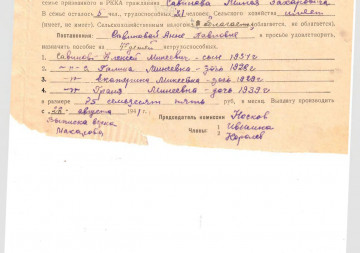 семье призванного в РККА гражданина Савинова Миная Захаровича
В семье осталось 5 чел., трудоспособных 21 человек. Сельского хозяйства имеет
(имеет, не имеет). Сельскохозяйственным налогом облагается, не облагается).
Постановили: Савиновой Анне Павловне в просьбе удовлетворить,
назначить пособие на 4 детей нетрудоспособных.
1. Савинов Алексей Минеевич - сын 1937 г
2. —"— Галина Минеевна - дочь 1928 г
3. —"— Екатерина Минеевна - дочь 1929 г
4. —"— Минеевна - дочь 1939 г
в размере 75 семьдесят пять руб. в месяц. Выплату производить
с 22 августа 1941 г.
Председатель комиссии Носков
Выписка верна
Члены: Ившина
Макарова
Королев